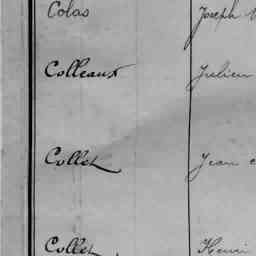 Colas Joseph
Colleaux Julien
Collet Jean
Collet Henri